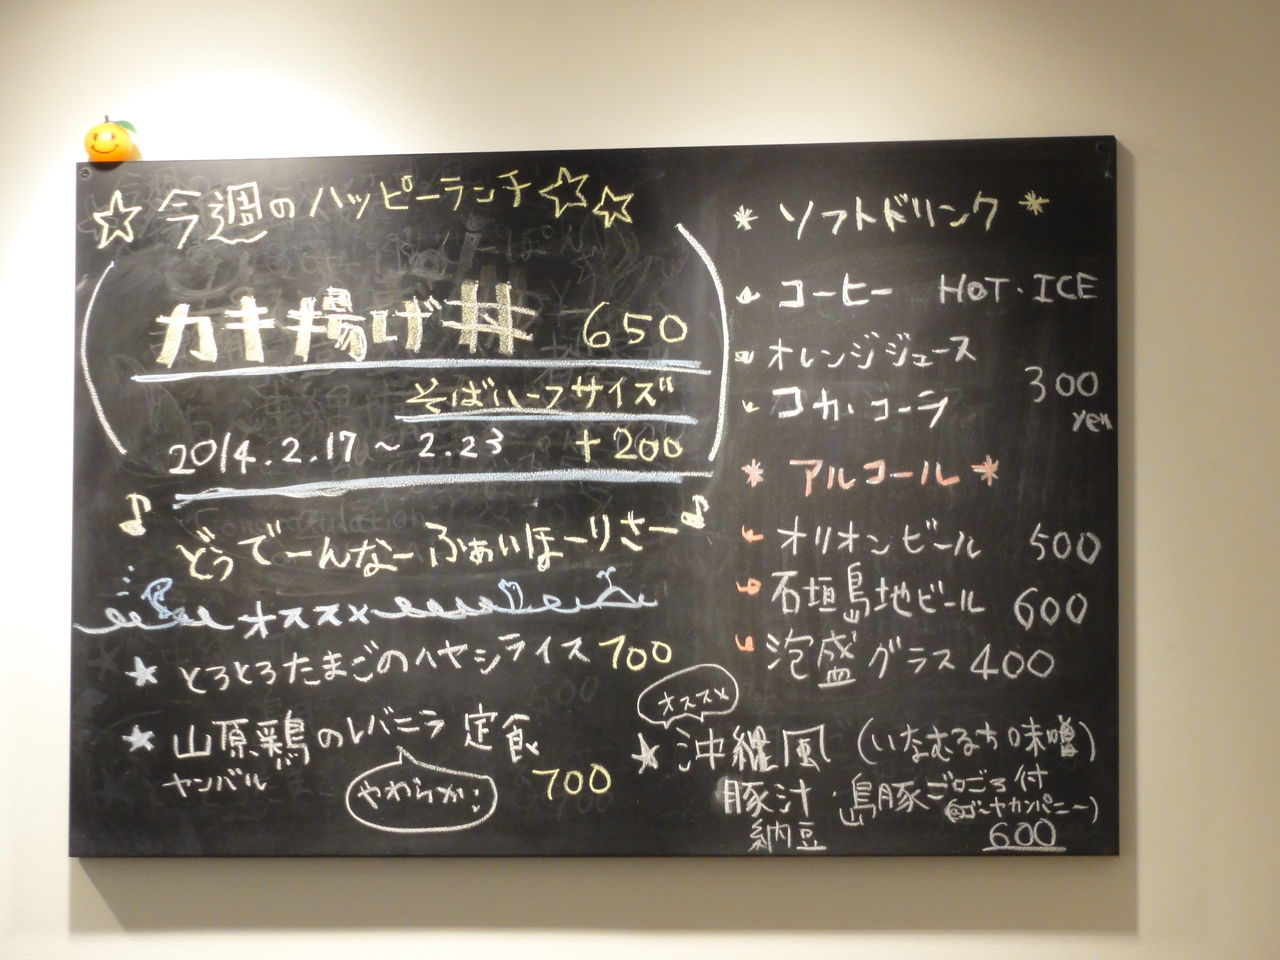 今週のハッピーランチ
カキ揚げ丼 650
そばハーフサイズ
2014.2.17～2.23 +200
どぅでーんなーふぁいほーりさー
オススメ
とろとろたまごのハヤシライス 700
山原鶏のレバニラ定食
ヤンバル
やわらか
700
ソフトドリンク
コーヒー HOT・ICE
オレンジジュース
コカ・コーラ
300
yen
アルコール
オリオンビール 500
石垣島地ビール 600
泡盛グラス 400
オススメ
沖縄風 (いなむるち味噌)
豚汁・島豚ごろごろ付
納豆
600